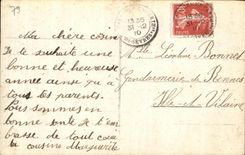 79
Ma chère cousine
Je te souhaite une
bonne et heureuse
année ainsi qu'à
tous tes parents.
Nous sommes en
bonne santé Je t'em
brasse de tout cœur
ta cousine Marguerite
13 35
31 - 12
10
Mlle Léontine Bonnet
Gendarmerie de Rennes
Ille-et-Vilaine